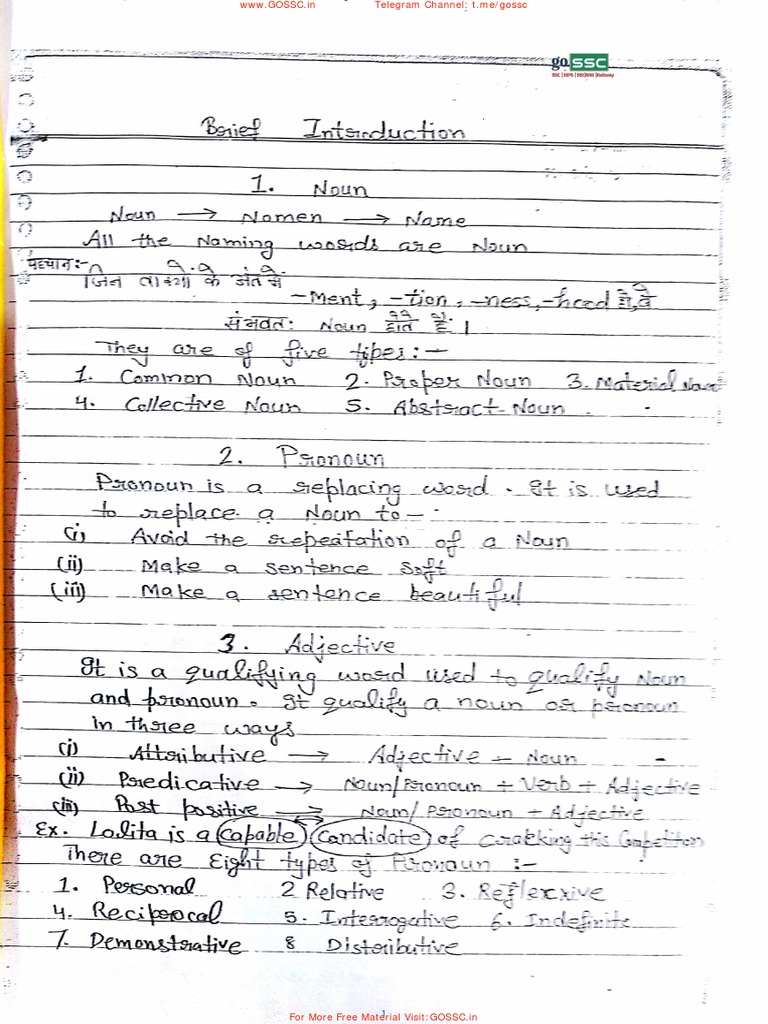 www.GOSSC.in Telegram Channel: t.me/gossc
goSSC
SSC | IBPS | SBI|RRB |Railway
Brief Introduction
1. Noun
Noun → Nomen → Name
All the Naming words are Noun
पहचान:- जिन वाक्यो के अंत में
-Ment, -tion, -ness, -hood हो, वे
संभवतः Noun होते हैं।
They are of five types:-
1. Common Noun 2. Proper Noun 3. Material Noun
4. Collective Noun 5. Abstract Noun
2. Pronoun
Pronoun is a replacing word. It is used
to replace a Noun to-
(i) Avoid the repeatation of a Noun
(ii) Make a sentence soft
(iii) Make a sentence beautiful
3. Adjective
It is a qualifying word used to qualify Noun
and pronoun. It qualify a noun or pronoun
in three ways
(i) Attributive → Adjective + Noun
(ii) Predicative → Noun/Pronoun + Verb + Adjective
(iii) Post positive → Noun/Pronoun + Adjective
Ex. Lolita is a Capable Candidate of cracking this Competition
There are Eight types of Pronoun :-
1. Personal 2 Relative 3. Reflexive
4. Reciprocal 5. Interrogative 6. Indefinite
7. Demonstrative 8 Distributive
1
For More Free Material Visit: GOSSC.in